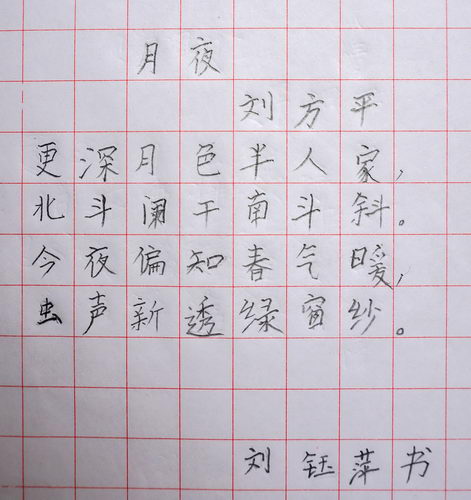 月夜
刘方平
更深月色半人家,
北斗阑干南斗斜。
今夜偏知春气暖,
虫声新透绿窗纱。
刘钰萍书